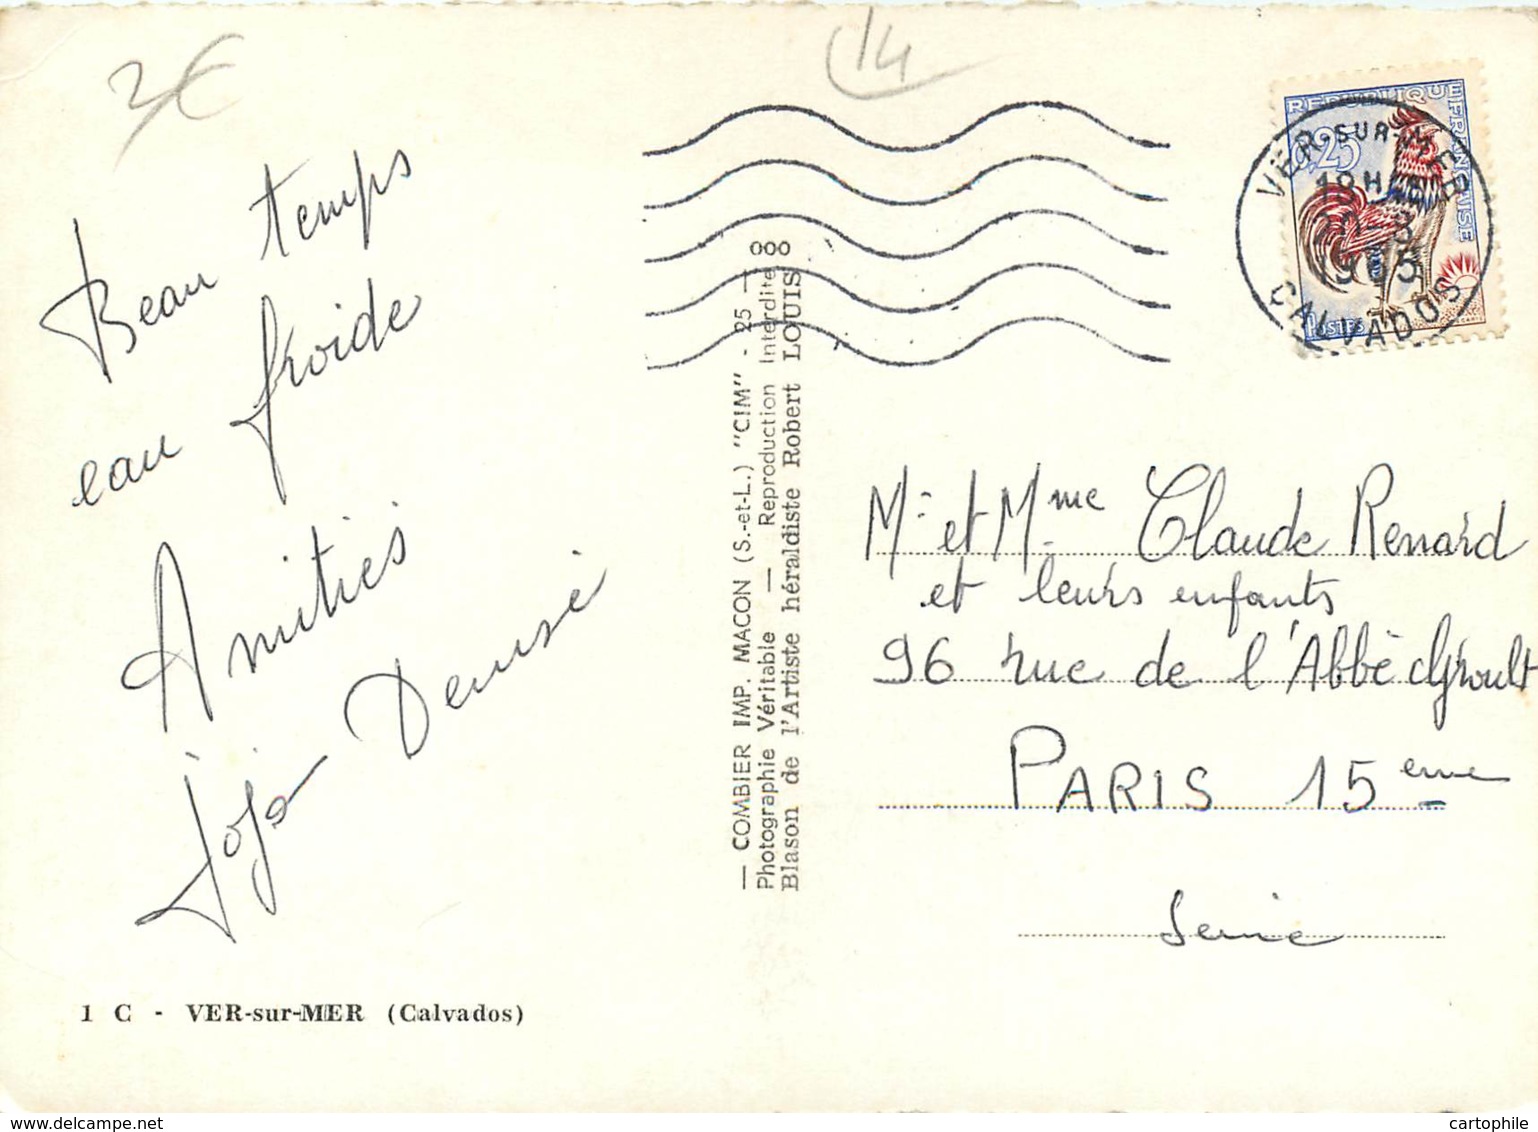 3€
14
RÉPUBLIQUE FRANÇAISE
0,25
POSTES
VER-SUR-MER
18H
8
1965
CALVADOS
Beau temps
eau froide
Amitiés
Jojo Denise
1 C - VER-sur-MER (Calvados)
— COMBIER IMP. MACON (S.-et-L.) "CIM" - 25 — ooo
Photographie Véritable — Reproduction Interdite
Blason de l'Artiste héraldiste Robert LOUIS
Mr et Mme Claude Renard
et leurs enfants
96 rue de l'Abbé Groult
PARIS 15eme
Seine
cartophile